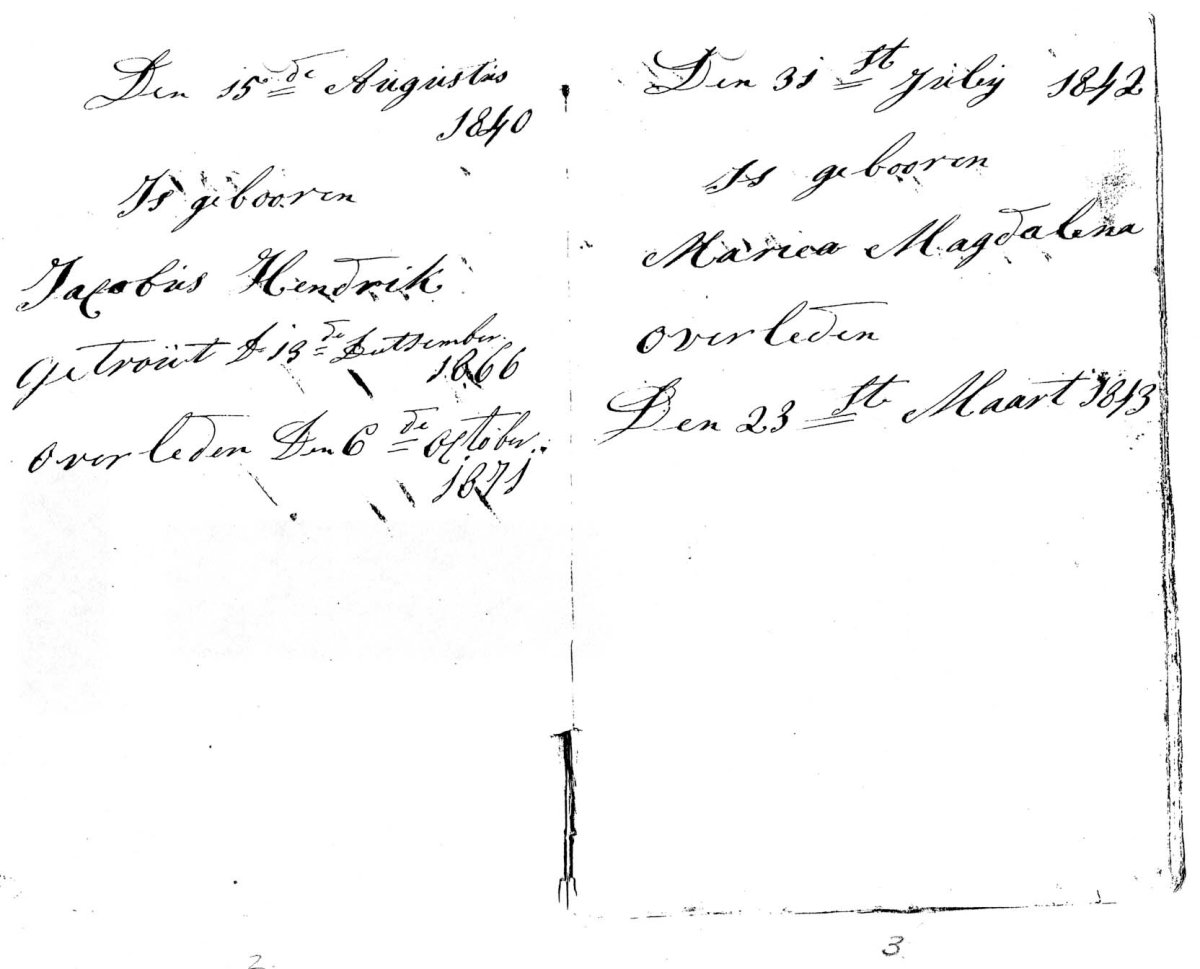 Den 15 de Augustus
1840
Is gebooren
Jacobus Hendrik
getrouwt D 13 de
1866
overleden Den 6 de October
1871
2
Den 31 st July 1842
Is gebooren
Marica Magdalena
overleden
Den 23 st Maart 1843
3